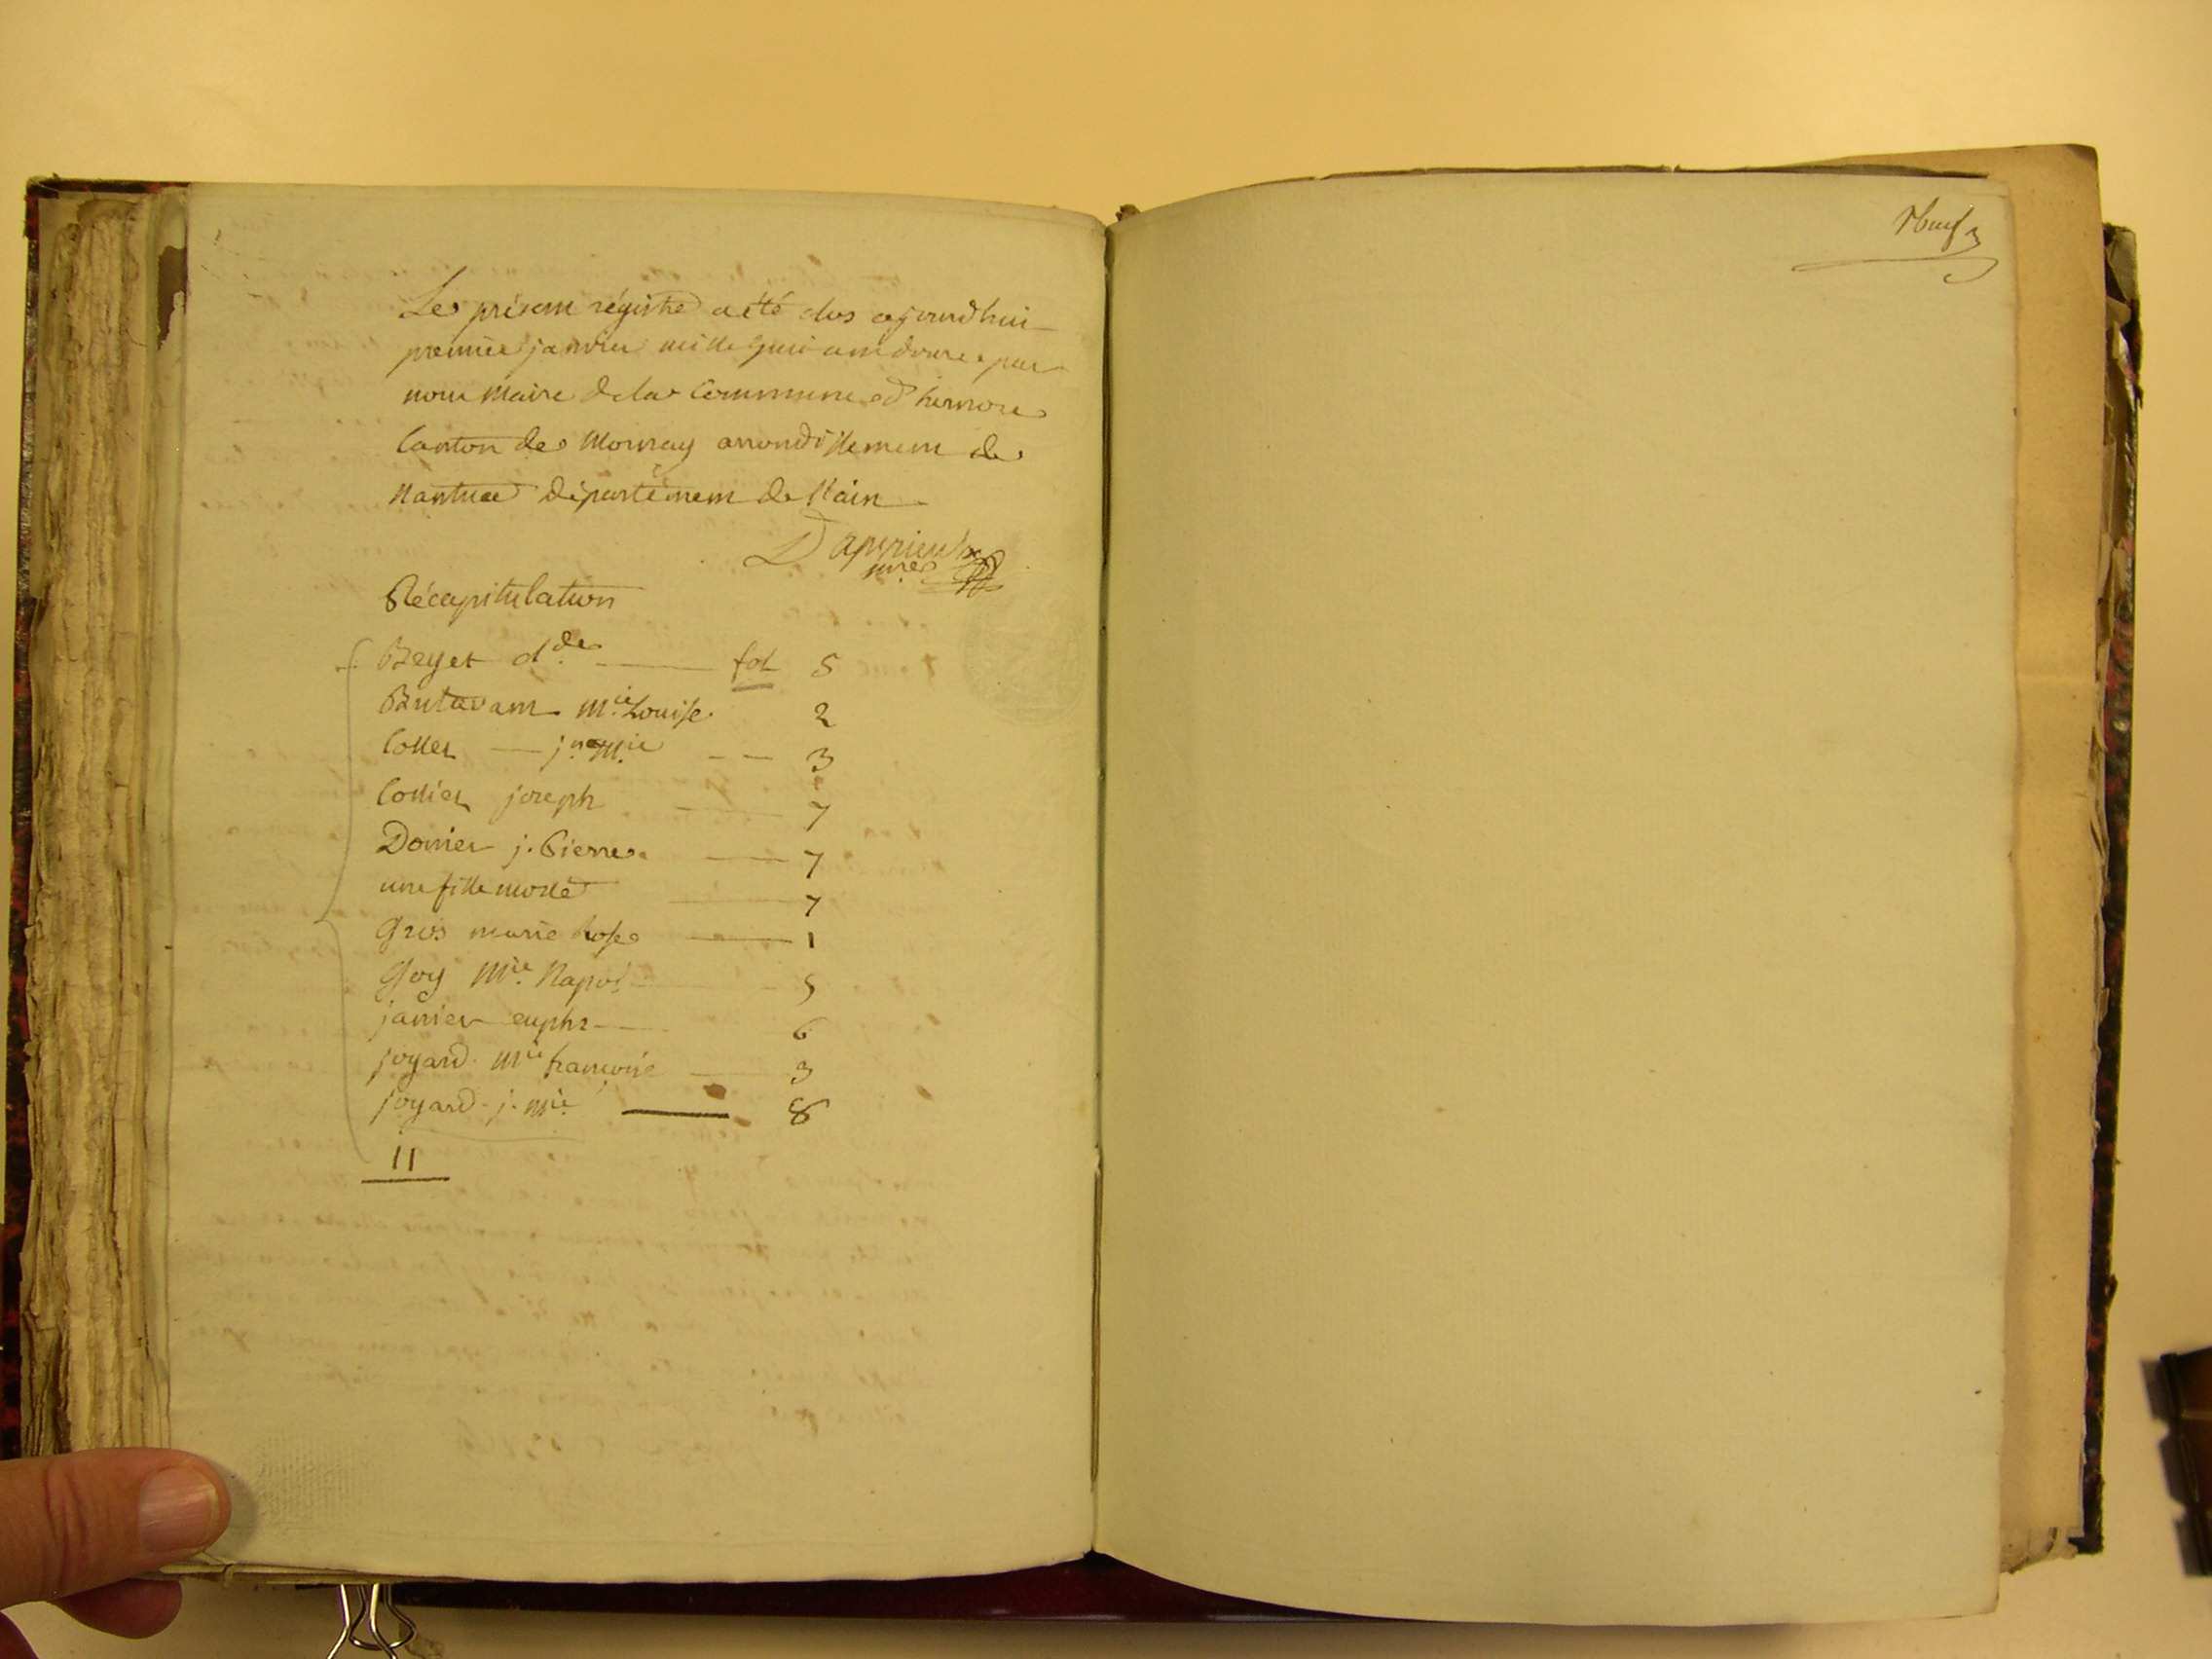 Le présent régistre a été clos ajourdhui
premier janvier mille huit cent douze par
nous Maire de la Commune d'hernore
Canton de Mornay arrondissement de
Nantua département de l'ain
Récapitulation
Beyet fol 5
Butavant Mie Louise 2
Collet jne Mie 3
Collet joseph 7
Donier j. Pierre 7
une fille morte 7
Gros marie Rose 1
Goy Mie Napol 5
janier euphr 6
joyard Mie françoise 3
joyard j. Mie 8
11
Neuf